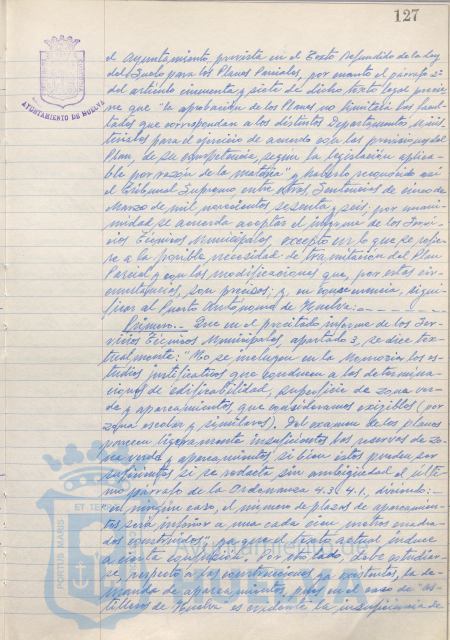 127
AYUNTAMIENTO DE HUELVA
el Ayuntamiento, prevista en el Texto Refundido de la Ley
del Suelo para los Planes Parciales, por cuanto el párrafo 2º
del artículo cincuenta y siete de dicho texto legal previe
ne que "la aprobación de los Planes no limitará las facul-
tades que correspondan a los distintos Departamentos Minis
teriales para el ejercicio de acuerdo con las previsiones del
Plan, de su competencia, según la legislación aplica-
ble por razón de la materia" y haberlo requerido así
el Tribunal Supremo entre otras Sentencias de cinco de
Marzo de mil novecientos sesenta y seis; por unani-
midad se acuerda aceptar el informe de los Servi-
cios Técnicos Municipales, excepto en lo que se refie-
re a la posible necesidad de tramitación del Plan
Parcial y con las modificaciones que, por estas cir-
cunstancias, son precisas; y, en consecuencia, signi-
ficar al Puerto Autónomo de Huelva:
Primero.- Que en el precitado informe de los Ser-
vicios Técnicos Municipales, apartado 3, se dice tex-
tualmente: "No se incluyen en la Memoria los es-
tudios justificativos que conducen a las determina-
ciones de edificabilidad, superficie de zona ver-
de y aparcamientos, que consideramos exigibles (por
zona escolar y similares). Del examen de los planos
parecen ligeramente insuficientes las reservas de zo-
na verde y aparcamientos, si bien éstos pueden ser
suficientes si se redacta sin ambigüedad el últi-
mo párrafo de la Ordenanza 4.3/4.1., diciendo:-
en ningún caso, el número de plazas de aparcamien-
tos será inferior a una cada cien metros cuadra-
dos construidos", ya que el texto actual induce
a cierta confusión. Por otro lado, debe estudiar-
se, respecto a las construcciones ya existentes, la de-
manda de aparcamientos, pues en el caso de "As-
tilleros de Huelva es evidente la insuficiencia de
PORTUS MARIS
ET TERRAE